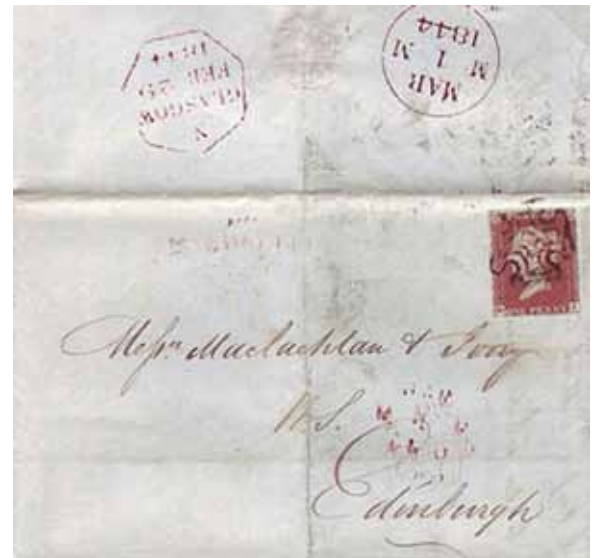 GLASGOW
FEB 29
1844
MAR
M 1 M
1844
ONE PENNY
Messrs Maclachlan & Ivory
W.S.
Edinburgh